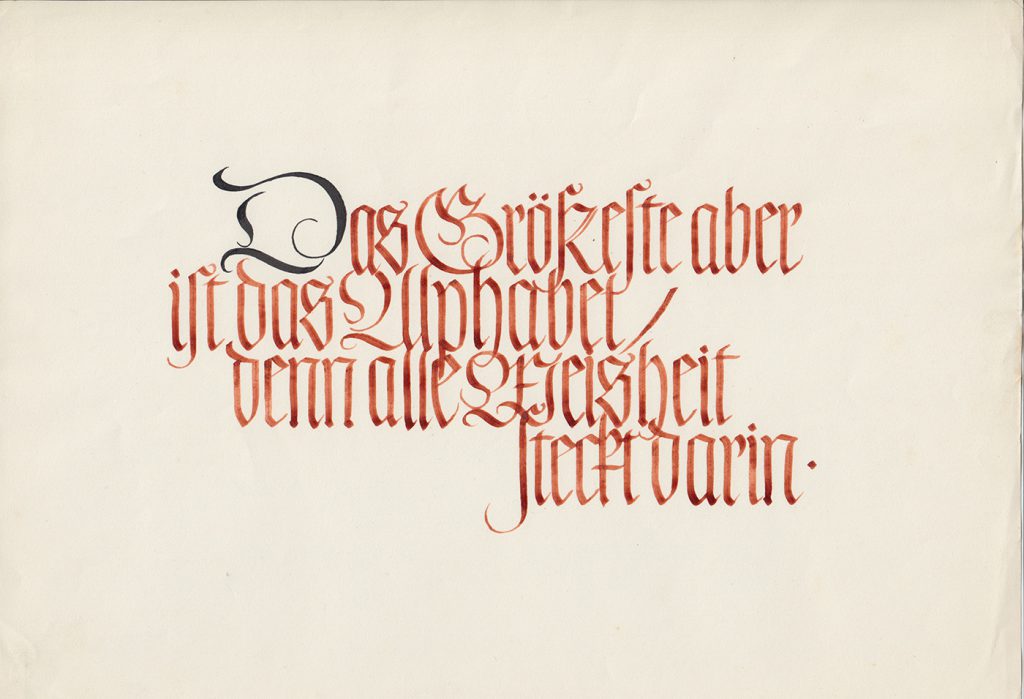 Das Größeste aber
ist das Alphabet/
denn alle Weisheit
steckt darin.